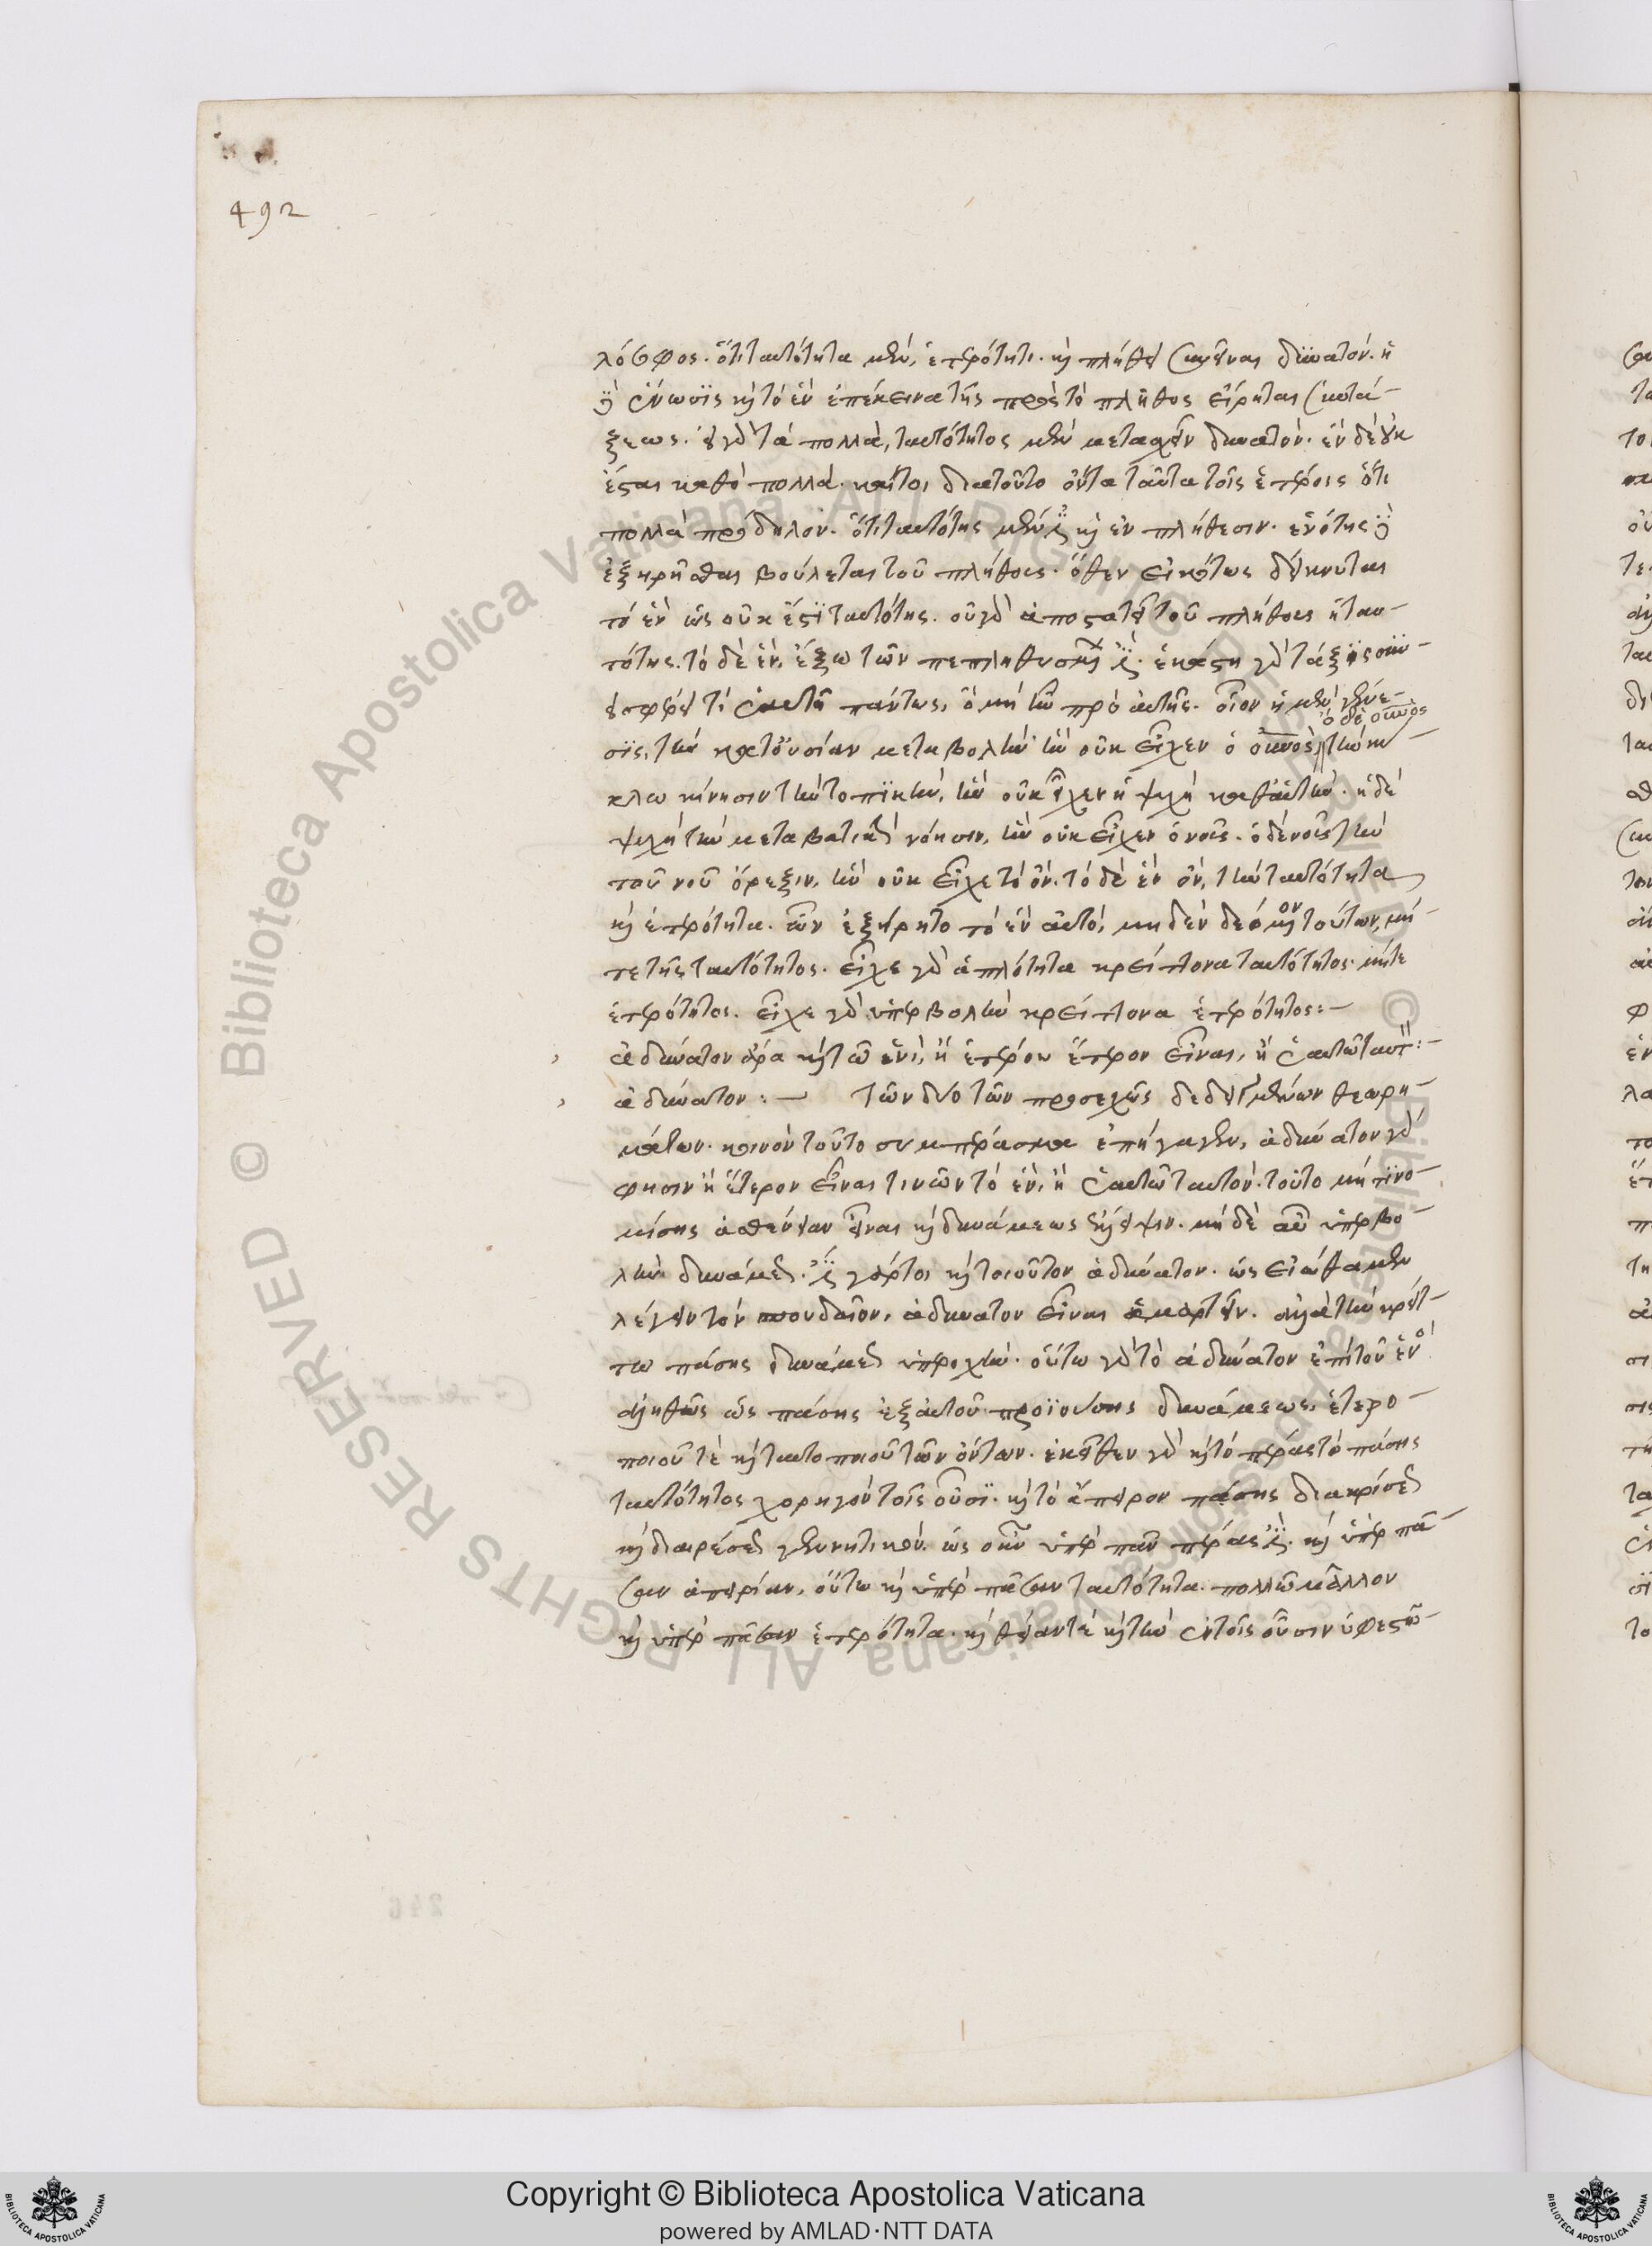 492
λόσοφος. ὅτι ταυτότητα μὲν, ἑτερότητι. καὶ πλήθει συνεῖναι δυνατόν. ἡ
δὲ ἕνωσις καὶ τὸ ἓν ἐπέκεινα τῆς πρὸς τὸ πλῆθος εἴρηται συντά-
ξεως. εἰ γὰρ τὰ πολλὰ, ταυτότητος μὲν μετασχεῖν δυνατόν. ἓν δὲ οὐκ
ἔσται καθὸ πολλά. καίτοι διατοῦτο ὄντα ταῦτα τοῖς ἑτέροις ὅτι
πολλὰ πρόδηλον. ὅτι ταυτότης μὲν ἐστὶ καὶ ἐν πλήθεσιν. ἑνότης δὲ
ἐξηρῆσθαι βούλεται τοῦ πλήθους. ὅθεν εἰκότως δείκνυται
τὸ ἓν ὡς οὐκ ἔστι ταυτότης. οὐ γὰρ ἀποστατεῖ τοῦ πλήθους ἡ ταυ-
τότης. τὸ δὲ ἓν, ἔξω τῶν πεπληθυσμένων ἐστὶ. ἑκάστη γὰρ τάξις συν-
εισφέρει τι ἑαυτῇ πάντως, ὃ μὴ ἦν πρὸ αὐτῆς. οἷον ἡ μὲν γένε-
σις, τὴν κατ' οὐσίαν μεταβολὴν ἣν οὐκ εἶχεν ὁ οὐνος ὁ δὲ οὐνος τὴν κύ-
κλω κίνησιν τὴν τοπικὴν, ἣν οὐκ εἶχεν ἡ ψυχὴ καθ' αὑτὴν. ἡ δὲ
ψυχὴ τὴν μεταβατικὴν νόησιν, ἣν οὐκ εἶχεν ὁ νοῦς. ὁ δὲ νοῦς τὴν
τοῦ νοῦ ὄρεξιν, ἣν οὐκ εἶχε τὸ ὄν. τὸ δὲ ἓν ὄν, τὴν ταυτότητα
καὶ ἑτερότητα. ὧν ἐξῄρητο τὸ ἓν αὐτό, μηδὲν δεόμενον τούτων, μή-
τε τῆς ταυτότητος. εἶχε γὰρ ἁπλότητα κρείττονα ταυτότητος. μήτε
ἑτερότητος. εἶχε γὰρ ὑπερβολὴν κρείττονα ἑτερότητος:-
ἀδύνατον ἄρα καὶ τῶ ἑνὶ, ἢ ἑτέρου ἕτερον εἶναι, ἢ ἑαυτῶ ταυτ:-
ἀδύνατον:- Τῶν δύο τῶν προσεχῶς δεδειγμένων θεωρη-
μάτων. κοινὸν τοῦτο συμπέρασμα ἐπήγαγεν, ἀδύνατον γὰρ
φησιν ἢ ἕτερον εἶναι τινῶν τὸ ἓν, ἢ ἑαυτῶ ταυτόν. τοῦτο μή τι νο-
μίσης ἀσθένειαν εἶναι καὶ δυνάμεως ἔλλειψιν. μὴ δὲ αὖ ὑπερβο-
λὴν δυνάμεως. ἐστὶ γάρτοι καὶ τοιοῦτον ἀδύνατον. ὡς εἰώθαμεν
λέγειν τὸν σπουδαῖον, ἀδύνατον εἶναι ἁμαρτεῖν. ἀλλὰ τὴν κρείτ-
τω πάσης δυνάμεως ὑπεροχὴν. οὕτω γὰρ τὸ ἀδύνατον ἐπὶ τοῦ ἑνὸς
ἀληθῶς ὡς πάσης ἐξ αὐτοῦ προϊούσης δυνάμεως, ἑτερο-
ποιοῦ τὲ καὶ ταυτοποιοῦ τῶν ὄντων. ἐκεῖθεν γὰρ καὶ τὸ πέρας τὸ πάσης
ταυτότητος χορηγὸν τοῖς οὖσι. καὶ τὸ ἄπειρον πάσης διακρίσεως
καὶ διαιρέσεως γεννητικόν. ὡς οὖν ὑπὲρ πᾶν πέρας ἐστὶ. καὶ ὑπὲρ πᾶ-
σαν ἀπειρίαν, οὕτω καὶ ὑπὲρ πᾶσαν ταυτότητα. πολλῶ μᾶλλον
καὶ ὑπὲρ πᾶσαν ἑτερότητα. καὶ θείαν τὲ καὶ τὴν ἐν τοῖς οὖσιν ὑφεστῶ-
Copyright © Biblioteca Apostolica Vaticana
powered by AMLAD·NTT DATA